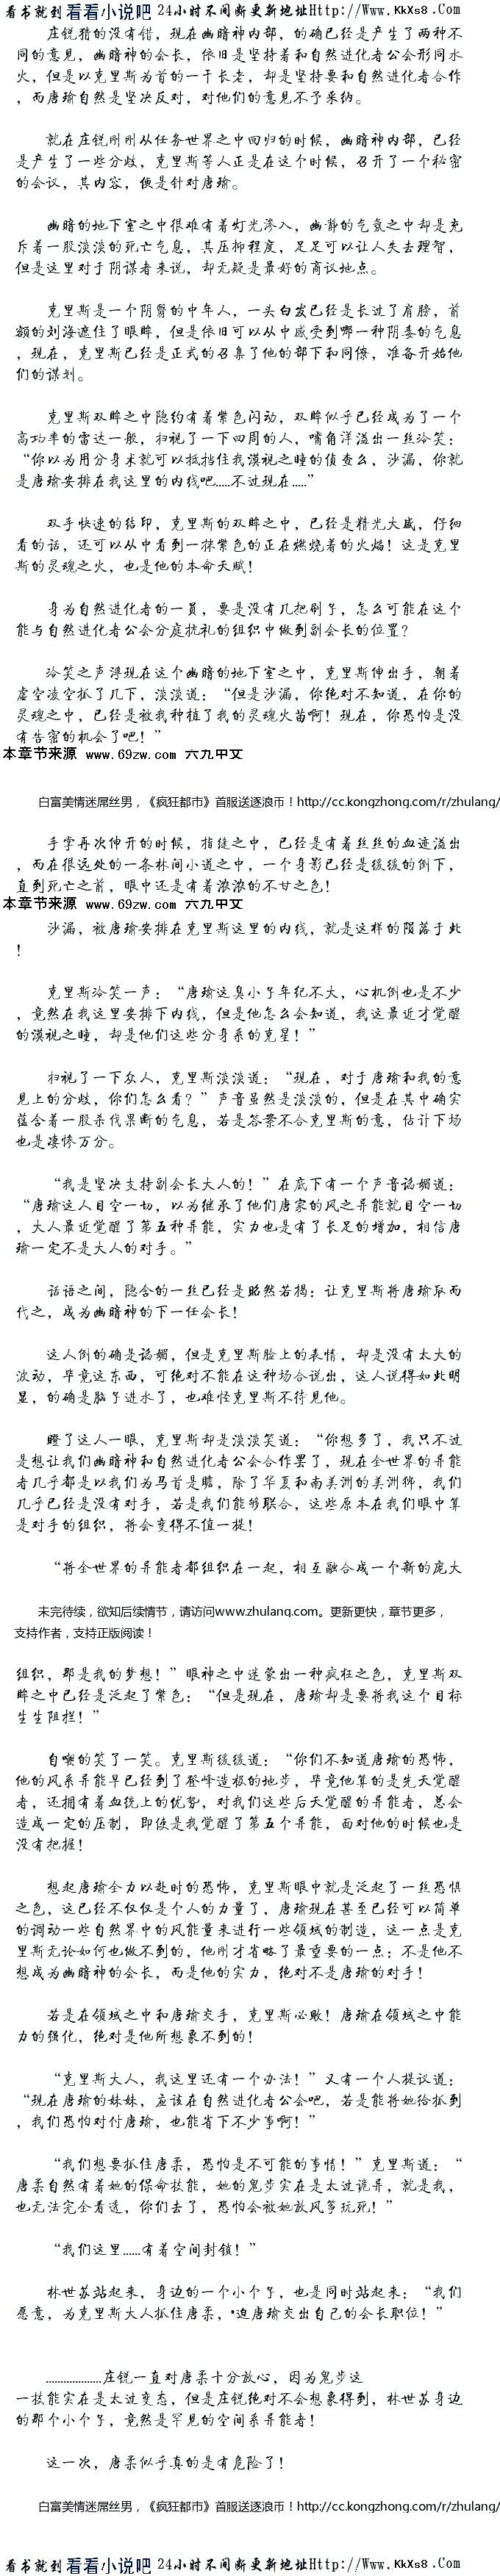 看书就到看看小说吧 24小时不间断更新地址Http://Www.KkXs8.Com
庄锐猜的没有错，现在幽暗神内部，的确已经是产生了两种不
同的意见，幽暗神的会长，依旧是坚持着和自然进化者公会形同水
火，但是以克里斯为首的一干长老，却是坚持要和自然进化者合作
，而唐瑜自然是坚决反对，对他们的意见不予采纳。
就在庄锐刚刚从任务世界之中回归的时候，幽暗神内部，已经
是产生了一些分歧，克里斯等人正是在这个时候，召开了一个秘密
的会议，其内容，便是针对唐瑜。
幽暗的地下室之中很难有着灯光渗入，幽静的气氛之中却是充
斥着一股淡淡的死亡气息，其压抑程度，足足可以让人失去理智，
但是这里对于阴谋者来说，却无疑是最好的商议地点。
克里斯是一个阴翳的中年人，一头白发已经是长过了肩膀，前
额的刘海遮住了眼眸，但是依旧可以从中感受到哪一种阴毒的气息
，现在，克里斯已经是正式的召集了他的部下和同僚，准备开始他
们的谋划。
克里斯双眸之中隐约有着紫色闪动，双眸似乎已经成为了一个
高功率的雷达一般，扫视了一下四周的人，嘴角洋溢出一丝冷笑：
“你以为用分身术就可以抵挡住我漠视之瞳的侦查么，沙漏，你就
是唐瑜安排在我这里的内线吧.....不过现在.....”
双手快速的结印，克里斯的双眸之中，已经是精光大盛，仔细
看的话，还可以从中看到一抹紫色的正在燃烧着的火焰！这是克里
斯的灵魂之火，也是他的本命天赋！
身为自然进化者的一员，要是没有几把刷子，怎么可能在这个
能与自然进化者公会分庭抗礼的组织中做到副会长的位置？
冷笑之声浮现在这个幽暗的地下室之中，克里斯伸出手，朝着
虚空凌空抓了几下，淡淡道：“但是沙漏，你绝对不知道，在你的
灵魂之中，已经是被我种植了我的灵魂火苗啊！现在，你恐怕是没
有告密的机会了吧！”
本章节来源 www.69zw.com 六九中文
白富美情迷屌丝男，《疯狂都市》首服送逐浪币！http://cc.kongzhong.com/r/zhulang/
手掌再次伸开的时候，指缝之中，已经是有着丝丝的血迹溢出
，而在很远处的一条林间小道之中，一个身影已经是缓缓的倒下，
直到死亡之前，眼中还是有着浓浓的不甘之色！
本章节来源 www.69zw.com 六九中文
沙漏，被唐瑜安排在克里斯这里的内线，就是这样的陨落于此
！
克里斯冷笑一声：“唐瑜这臭小子年纪不大，心机倒也是不少
，竟然在我这里安排下内线，但是他怎么会知道，我这最近才觉醒
的漠视之瞳，却是他们这些分身系的克星！”
扫视了一下众人，克里斯淡淡道：“现在，对于唐瑜和我的意
见上的分歧，你们怎么看？”声音虽然是淡淡的，但是在其中确实
蕴含着一股杀伐果断的气息，若是答案不合克里斯的意，估计下场
也是凄惨万分。
“我是坚决支持副会长大人的！”在底下有一个声音谄媚道：
“唐瑜这人目空一切，以为继承了他们唐家的风之异能就目空一切
，大人最近觉醒了第五种异能，实力也是有了长足的增加，相信唐
瑜一定不是大人的对手。”
话语之间，隐含的一丝已经是昭然若揭：让克里斯将唐瑜取而
代之，成为幽暗神的下一任会长！
这人倒的确是谄媚，但是克里斯脸上的表情，却是没有太大的
波动，毕竟这东西，可绝对不能在这种场合说出，这人说得如此明
显，的确是脑子进水了，也难怪克里斯不待见他。
瞪了这人一眼，克里斯却是淡淡笑道：“你想多了，我只不过
是想让我们幽暗神和自然进化者公会合作罢了，现在全世界的异能
者几乎都是以我们为马首是瞻，除了华夏和南美洲的美洲狮，我们
几乎已经是没有对手，若是我们能够联合，这些原本在我们眼中算
是对手的组织，将会变得不值一提！
“将全世界的异能者都组织在一起，相互融合成一个新的庞大
未完待续，欲知后续情节，请访问www.zhulang.com。更新更快，章节更多，
支持作者，支持正版阅读！
组织，那是我的梦想！”眼神之中迷蒙出一种疯狂之色，克里斯双
眸之中已经是泛起了紫色：“但是现在，唐瑜却是要将我这个目标
生生阻拦！”
自嘲的笑了一笑。克里斯缓缓道：“你们不知道唐瑜的恐怖，
他的风系异能早已经到了登峰造极的地步，毕竟他算的是先天觉醒
者，还拥有着血统上的优势，对我们这些后天觉醒的异能者，总会
造成一定的压制，即使是我觉醒了第五个异能，面对他的时候也是
没有把握！
想起唐瑜全力以赴时的恐怖，克里斯眼中就是泛起了一丝恐惧
之色，这已经不仅仅是个人的力量了，唐瑜现在甚至已经可以简单
的调动一些自然界中的风能量来进行一些领域的制造，这一点是克
里斯无论如何也做不到的，他刚才省略了最重要的一点：不是他不
想成为幽暗神的会长，而是他的实力，绝对不是唐瑜的对手！
若是在领域之中和唐瑜交手，克里斯必败！唐瑜在领域之中能
力的强化，绝对是他所想象不到的！
“克里斯大人，我这里还有一个办法！”又有一个人提议道：
“现在唐瑜的妹妹，应该在自然进化者公会吧，若是能将她给抓到
，我们恐怕对付唐瑜，也能省下不少事啊！”
“我们想要抓住唐柔，恐怕是不可能的事情！”克里斯道：“
唐柔自然有着她的保命技能，她的鬼步实在是太过诡异，就是我，
也无法完全看透，你们去了，恐怕会被她放风筝玩死！”
“我们这里......有着空间封锁！”
林世苏站起来，身边的一个小个子，也是同时站起来：“我们
愿意，为克里斯大人抓住唐柔，迫唐瑜交出自己的会长职位！”
...................庄锐一直对唐柔十分放心，因为鬼步这
一技能实在是太过变态，但是庄锐绝对不会想象得到，林世苏身边
的那个小个子，竟然是罕见的空间系异能者！
这一次，唐柔似乎真的是有危险了！
白富美情迷屌丝男，《疯狂都市》首服送逐浪币！http://cc.kongzhong.com/r/zhulang/
看书就到看看小说吧 24小时不间断更新地址Http://Www.KkXs8.Com